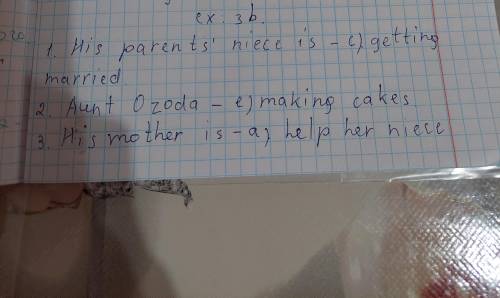 ex. 3b.
1. His parents' niece is - c) getting
married
2. Aunt Ozoda - e) making cakes
3. His mother is - a, help her niece